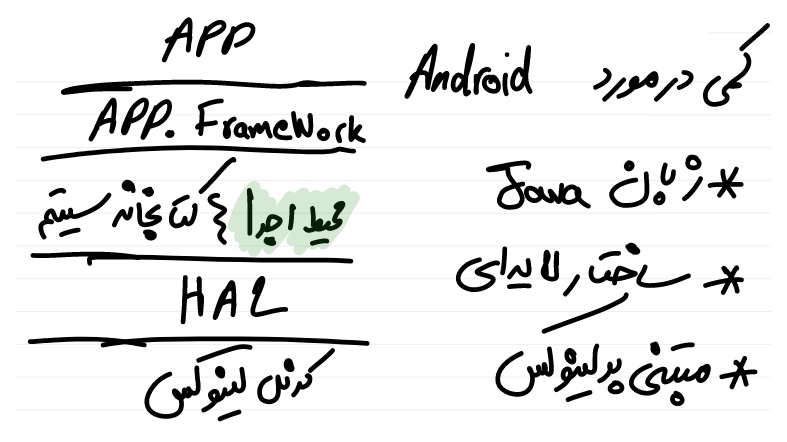 کمی در مورد Android
* زبان Java
* ساختار لایه‌ای
* مبتنی بر لینوکس
APP
APP. FrameWork
محیط اجرا } کتابخانه سیستم
HAL
کرنل لینوکس